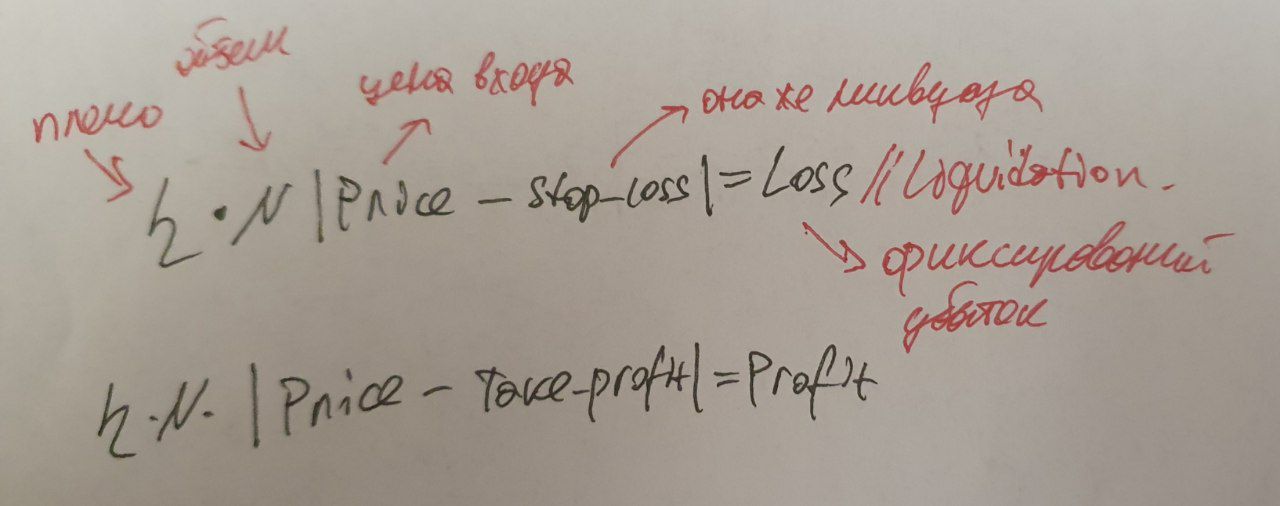 объем
плечо
цена входа
она же ликвида
h · N |Price - stop-loss| = Loss // Liquidation.
фиксированый
убыток
h · N · |Price - Take-profit| = Profit